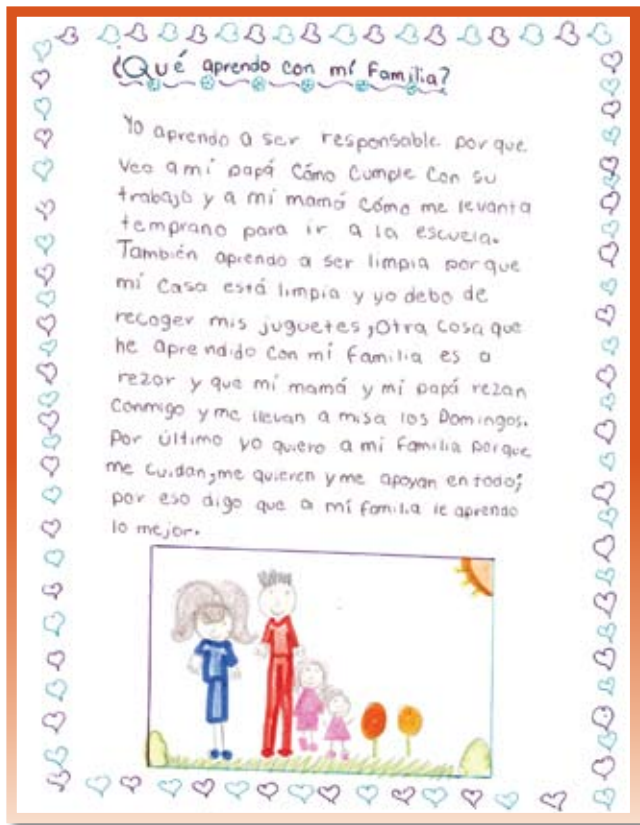 ¿Qué aprendo con mí familia?
Yo aprendo a ser responsable porque
veo a mí papá cómo cumple con su
trabajo y a mí mamá cómo me levanta
temprano para ir a la escuela.
También aprendo a ser limpia porque
mí casa está limpia y yo debo de
recoger mis juguetes, Otra cosa que
he aprendido con mí familia es a
rezar y que mí mamá y mí papá rezan
conmigo y me llevan a misa los Domingos.
Por último yo quiero a mí familia porque
me cuidan, me quieren y me apoyan en todo;
por eso digo que a mí familia le aprendo
lo mejor.